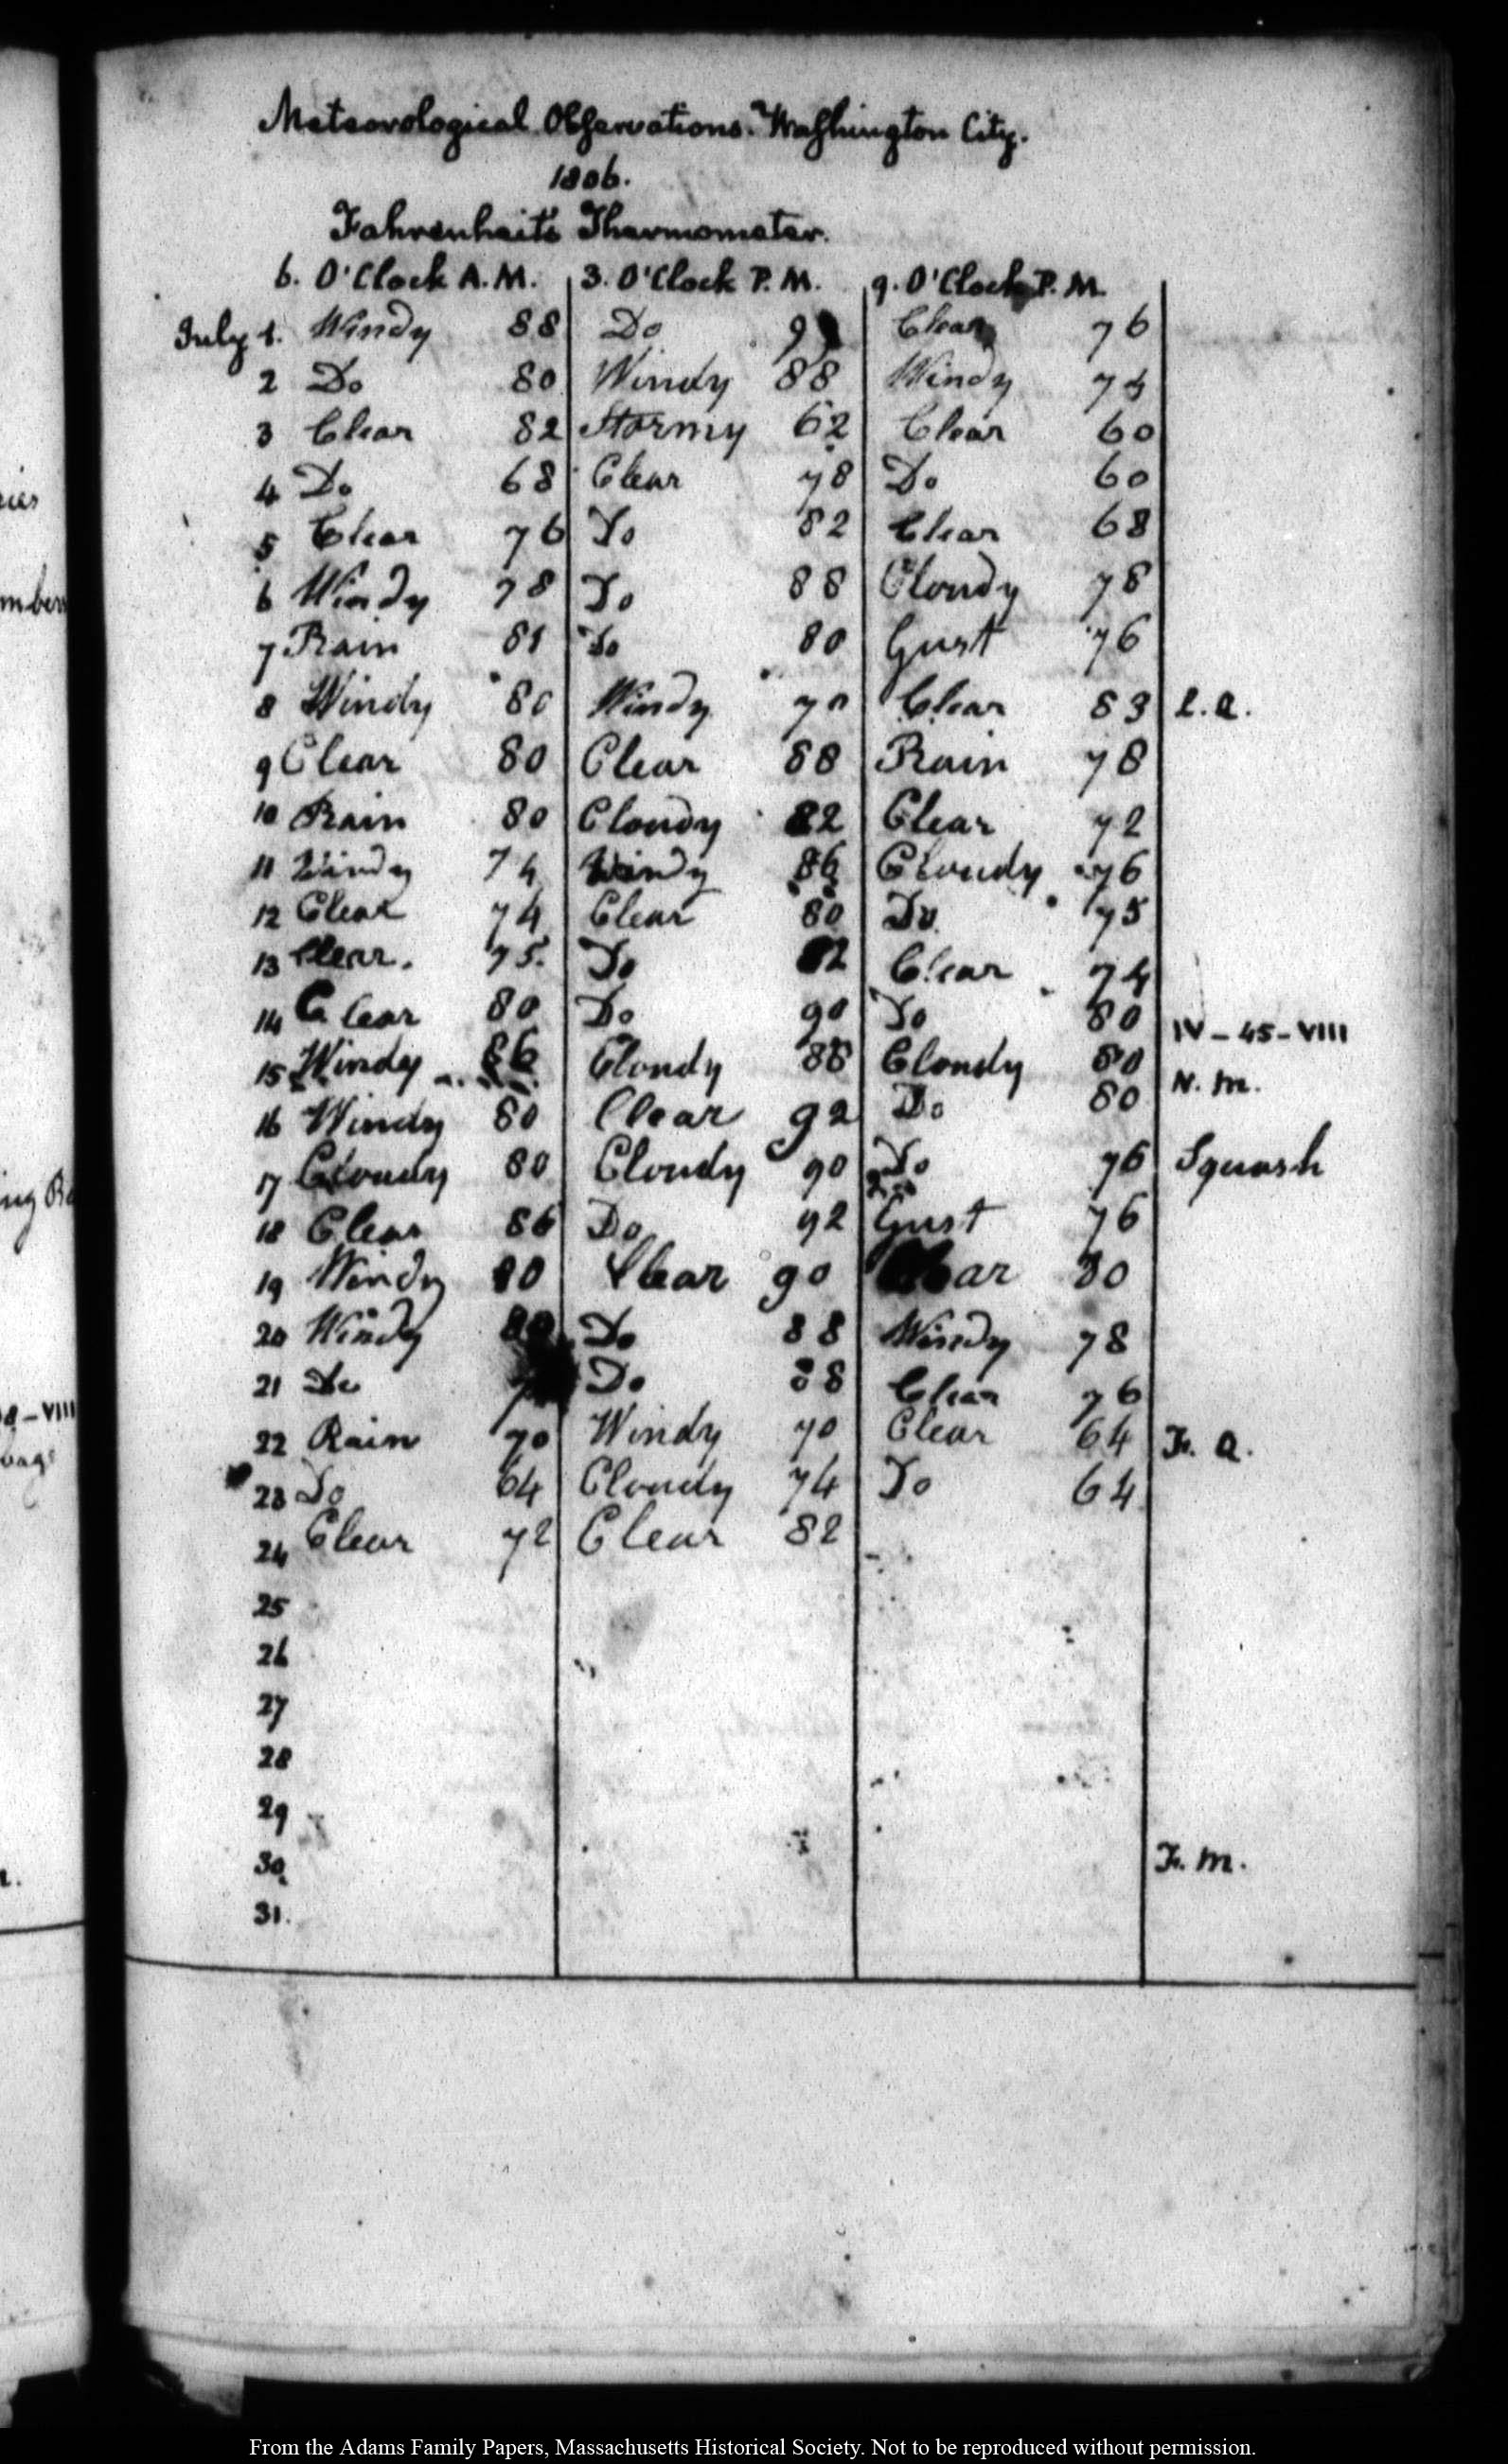 Meteorological Observations. Washington City.
1806.
Fahrenheit's Thermometer.
6. O'Clock A.M. 3. O'Clock P.M. 9. O'Clock P.M.
July 1. Windy 88 Do Clear 76
2 Do 80 Windy 88 Windy 74
3 Clear 82 Stormy 62 Clear 60
4 Do 68 Clear 78 Do 60
5 Clear 76 Do 82 Clear 68
6 Windy 78 Do 88 Cloudy 78
7 Rain 81 Do 80 Gust 76
8 Windy 80 Windy 70 Clear 83 L.Q.
9 Clear 80 Clear 88 Rain 78
10 Rain 80 Cloudy 82 Clear 72
11 Windy 74 Windy 86 Cloudy 76
12 Clear 74 Clear 80 Do 75
13 Clear. 75. Do 82 Clear 74
14 Clear 80 Do 90 Do 80 IV-45-VIII
15 Windy 86 Cloudy 88 Cloudy 80 N.M.
16 Windy 80 Clear 92 Do 80
17 Cloudy 80 Cloudy 90 Do 76 Squash
18 Clear 86 Do 92 Gust 76
19 Windy 80 Clear 90 Clear 80
20 Windy Do 88 Windy 78
21 Do Do 88 Clear 76
22 Rain 70 Windy 70 Clear 64 F. Q.
23 Do 64 Cloudy 74 Do 64
24 Clear 72 Clear 82
25
26
27
28
29
30 F.M.
31.
From the Adams Family Papers, Massachusetts Historical Society. Not to be reproduced without permission.